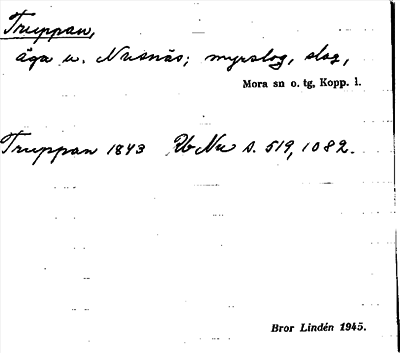 Truppan,
äga u. Nusnäs; myrslog, slog,
Mora sn o. tg, Kopp. l.
Truppan 1843 Rb Nu s. 519, 1082.
Bror Lindén 1945.